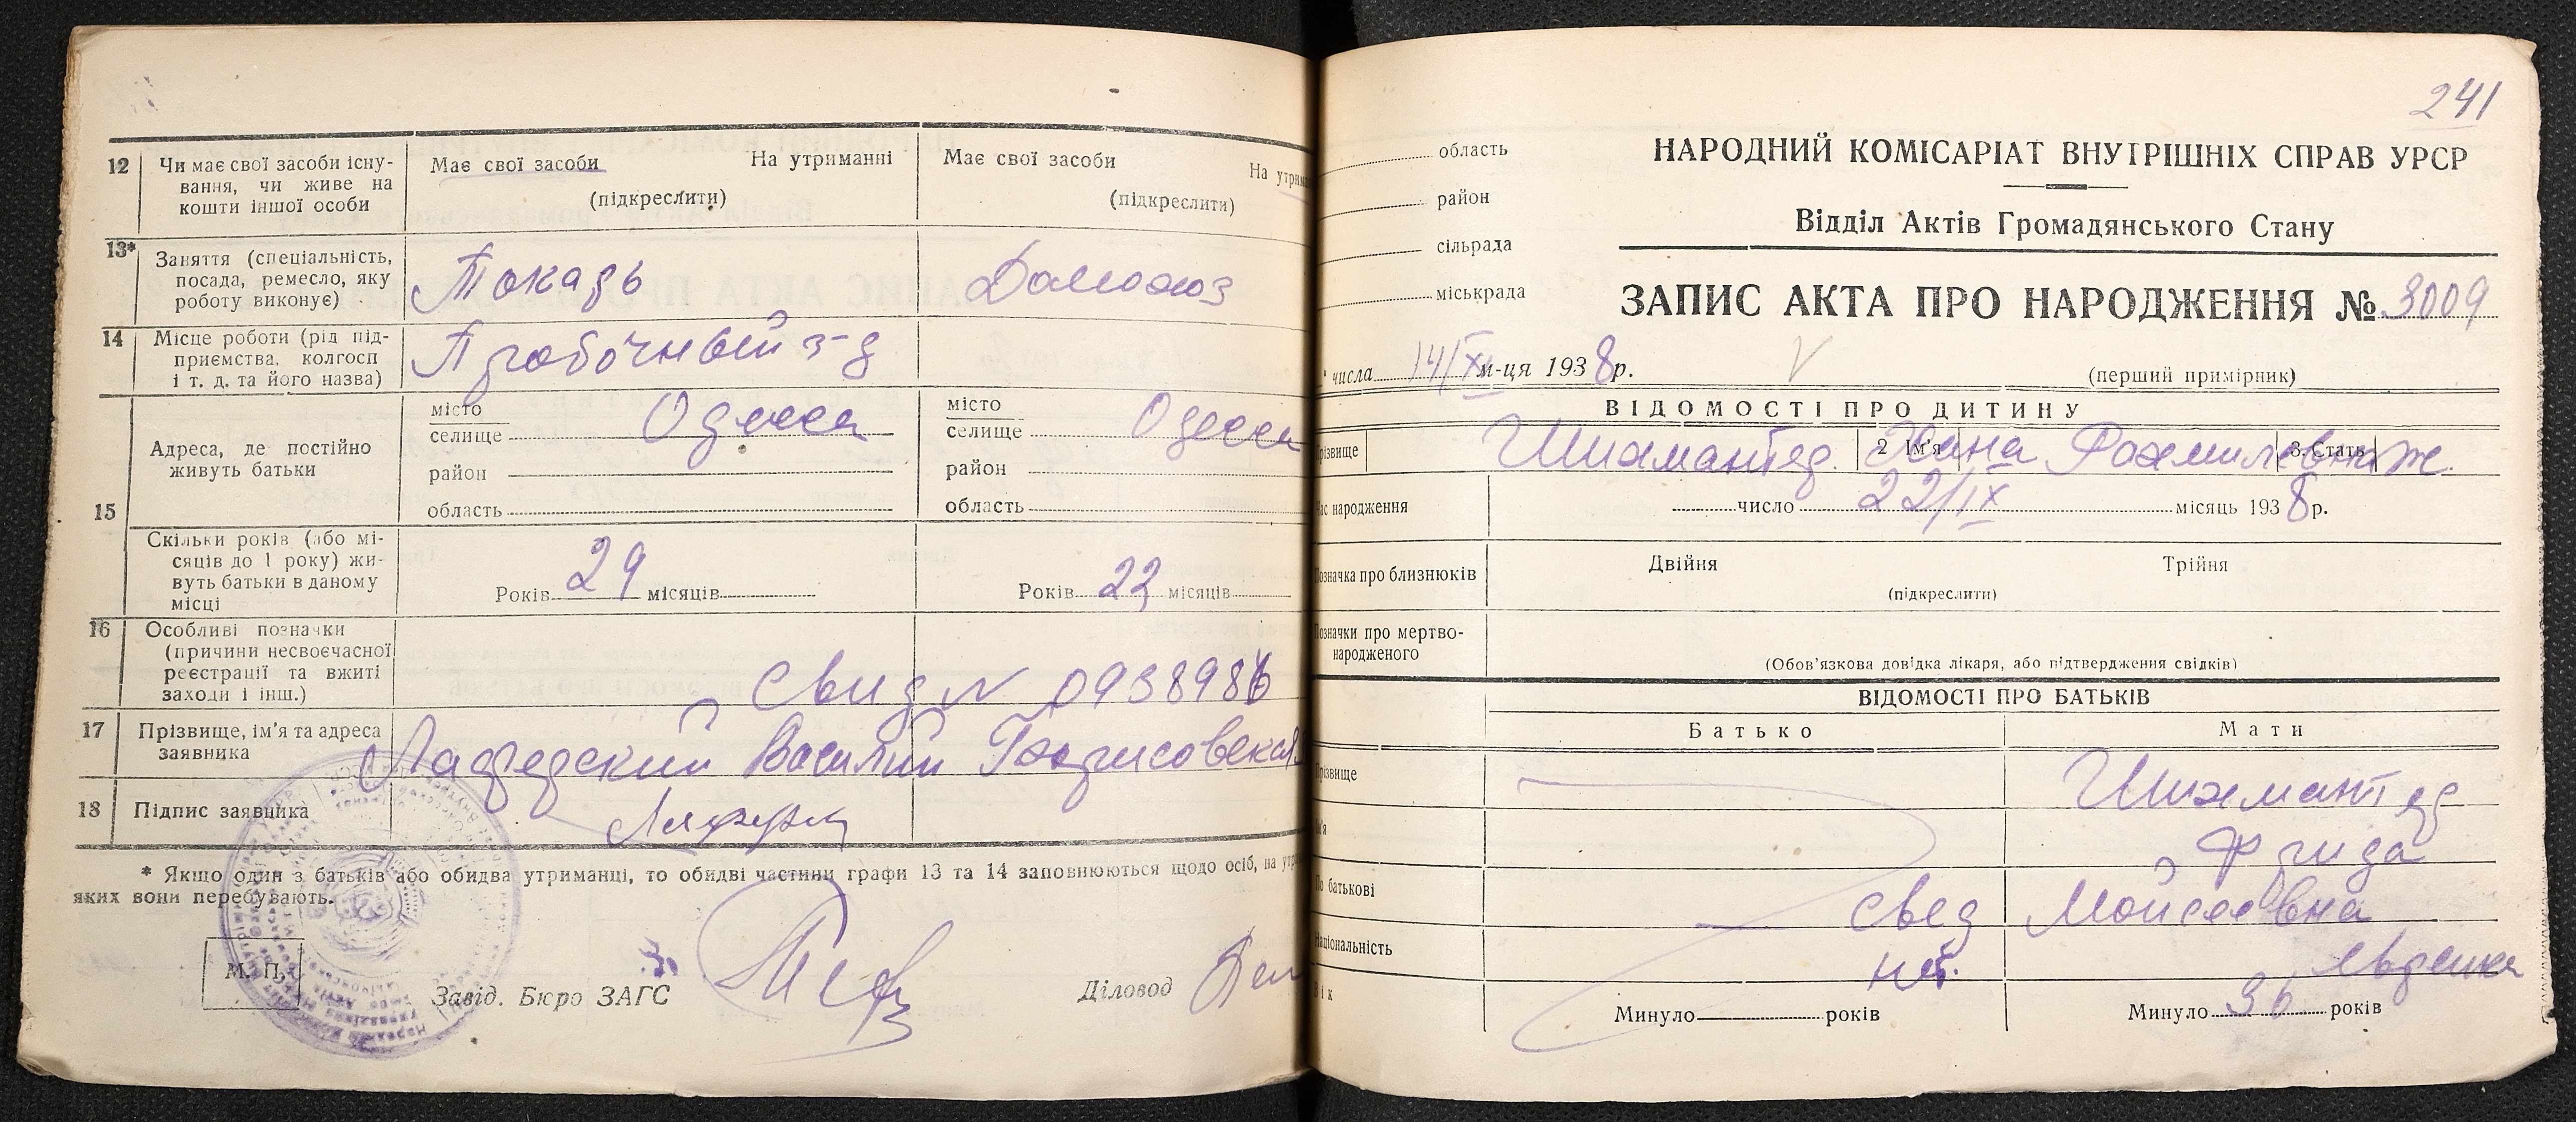 12 Чи має свої засоби існу-
вання, чи живе на
кошти іншої особи
Має свої засоби На утриманні
(підкреслити)
Має свої засоби На утрим
(підкреслити)
13* Заняття (спеціальність,
посада, ремесло, яку
роботу виконує)
Токарь
Домохоз
14 Місце роботи (рід під-
приємства, колгосп
і т. д. та його назва)
Пробочный з-д
15 Адреса, де постійно
живуть батьки
місто
селище Одесса
район
область
місто
селище Одесса
район
область
Скільки років (або мі-
сяців до 1 року) жи-
вуть батьки в даному
місці
Років 29 місяців
Років 22 місяців
16 Особливі позначки
(причини несвоєчасної
реєстрації та вжиті
заходи і інш.)
Свид N 0938986
17 Прізвище, ім'я та адреса
заявника
Василий
18 Підпис заявника
* Якщо один з батьків або обидва утриманці, то обидві частини графи 13 та 14 заповнюються щодо осіб, на утр
яких вони перебувають.
М. П.
Завід. Бюро ЗАГС
Діловод
241
область
район
сільрада
міськрада
НАРОДНИЙ КОМІСАРІАТ ВНУТРІШНІХ СПРАВ УРСР
Відділ Актів Громадянського Стану
ЗАПИС АКТА ПРО НАРОДЖЕННЯ № 3009
числа 14/XI м-ця 1938 р.
(перший примірник)
ВІДОМОСТІ ПРО ДИТИНУ
різвище Шихмантер 2 Ім'я Рахмилевна 3. Стать ж.
ас народження
число 22/IX місяць 1938 р.
Позначка про близнюків
Двійня Трійня
(підкреслити)
Позначки про мертво-
народженого
(Обов'язкова довідка лікаря, або підтвердження свідків)
ВІДОМОСТІ ПРО БАТЬКІВ
Батько Мати
різвище Шихмантер
м'я Фрида
По батькові Свед Мойсеевна
Національність нет. еврейка
Вік
Минуло років
Минуло 36 років